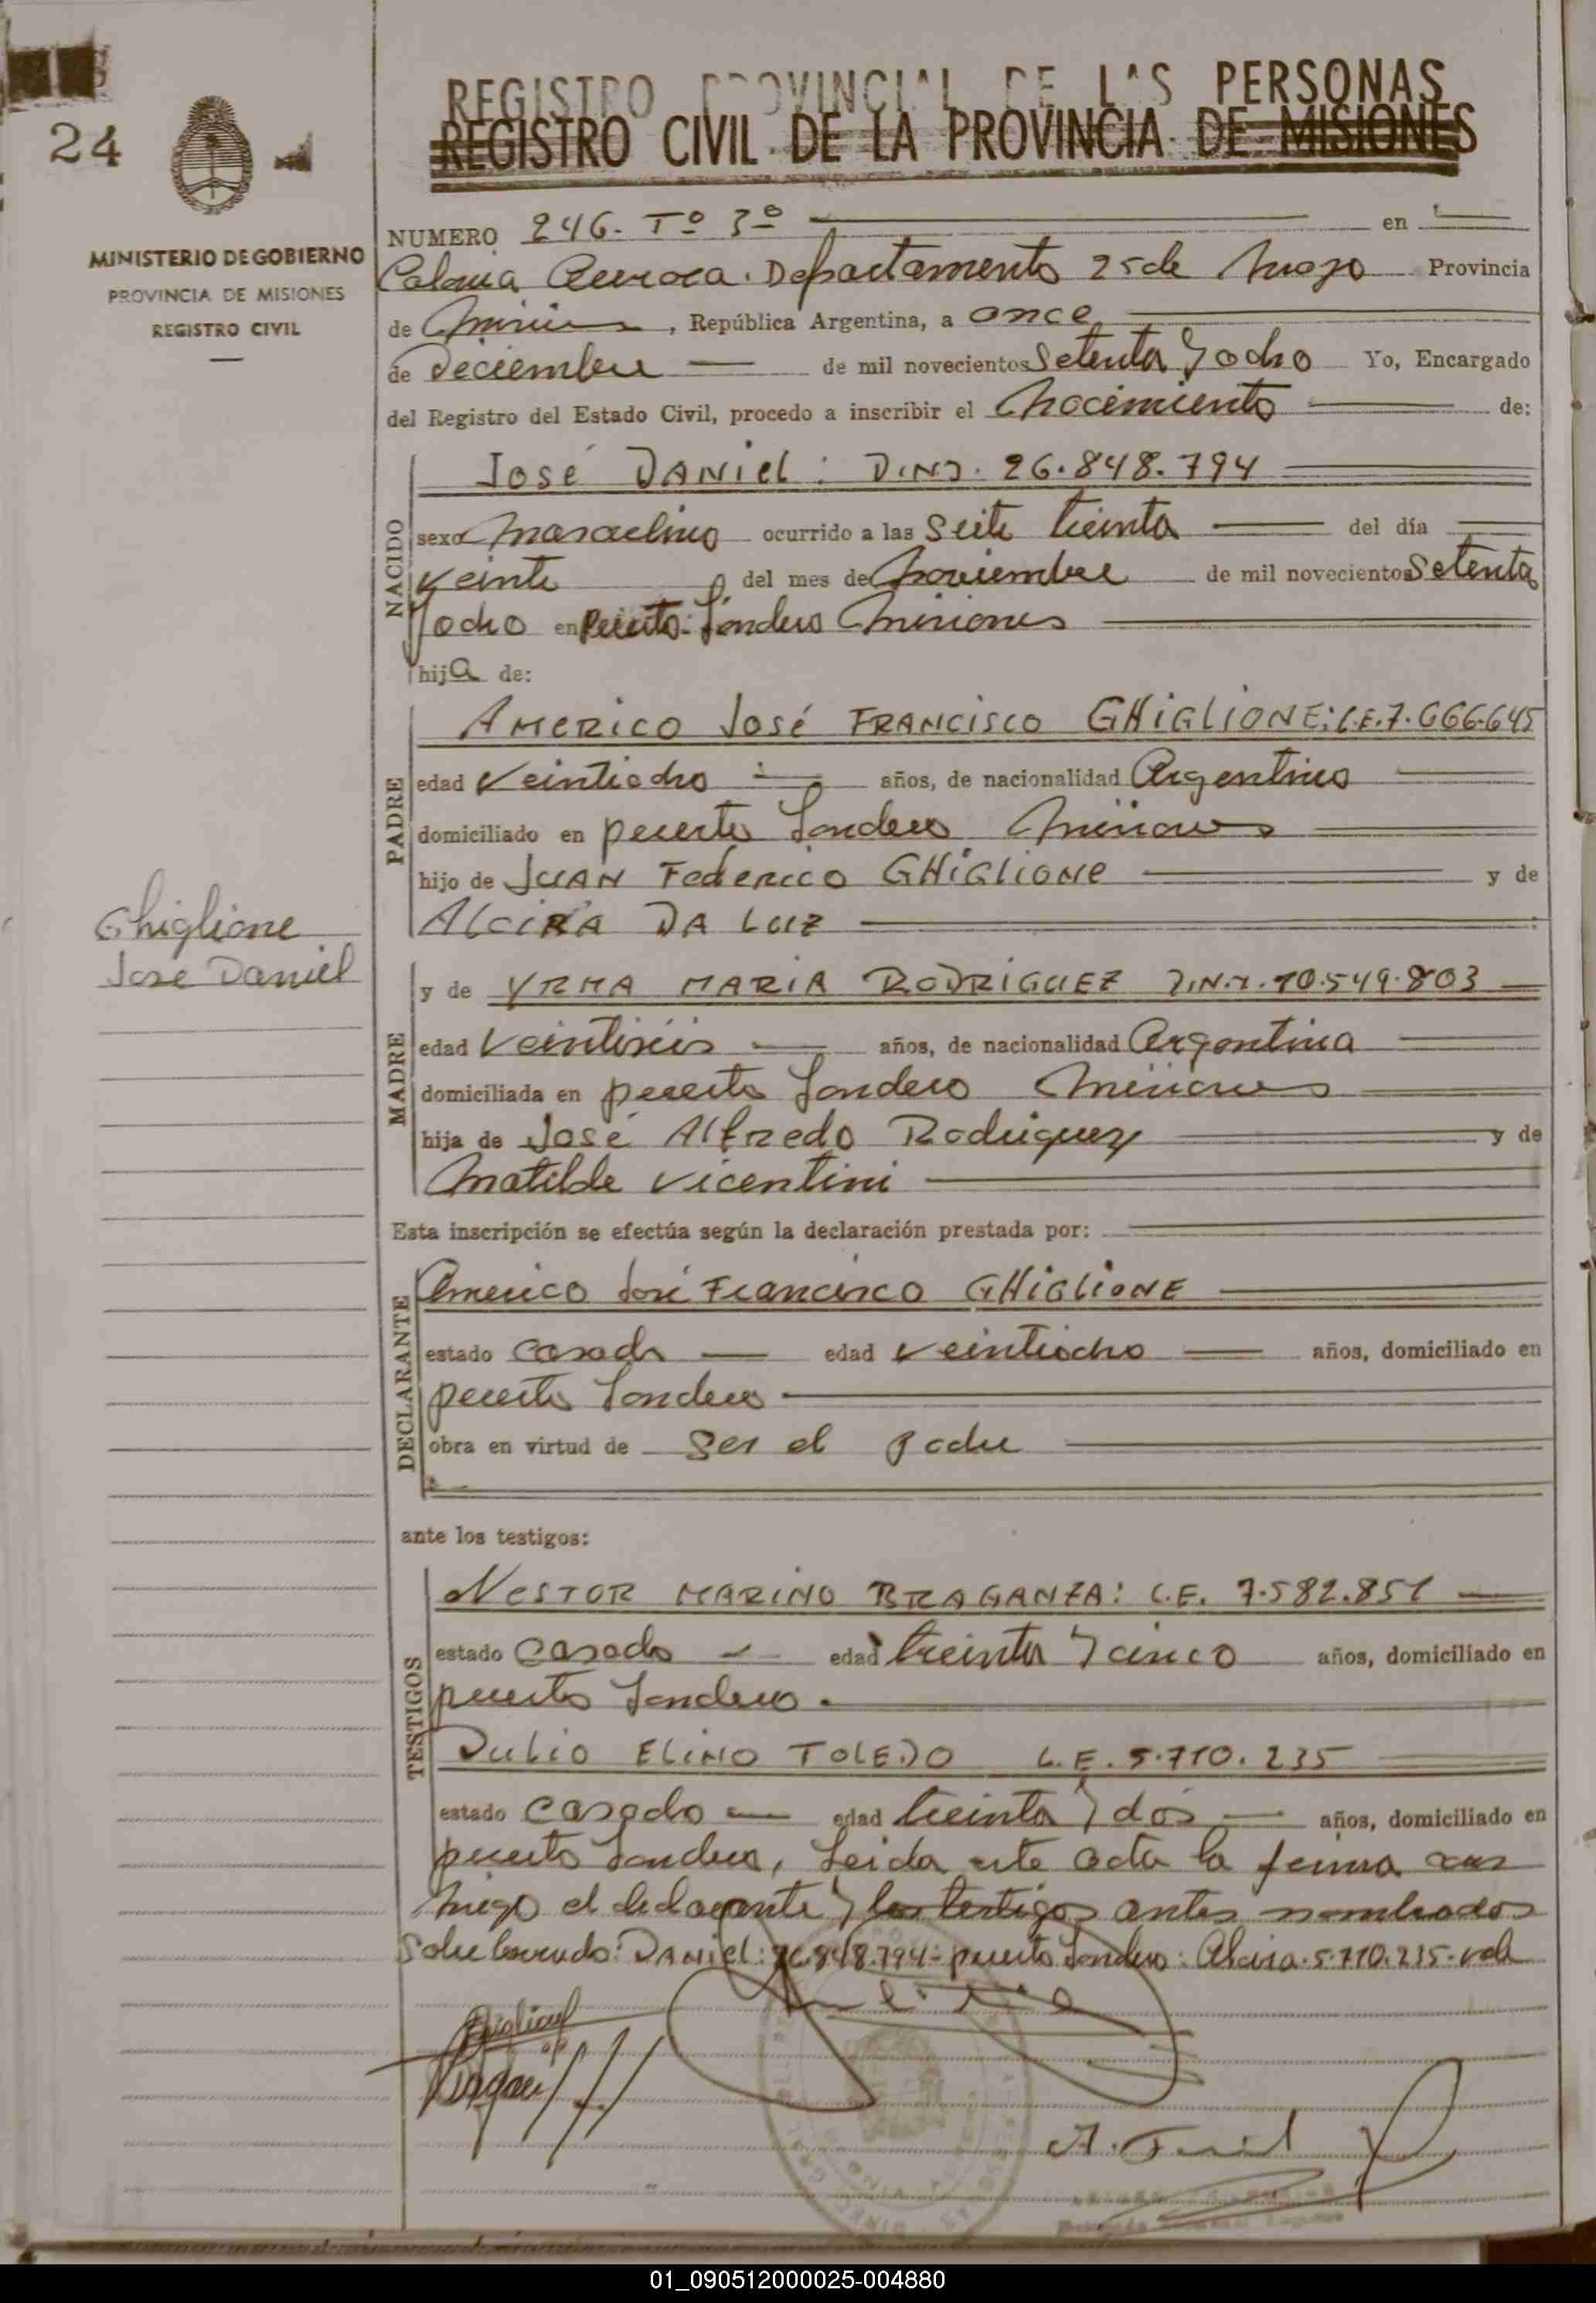 24
MINISTERIO DE GOBIERNO
PROVINCIA DE MISIONES
REGISTRO CIVIL
Ghiglione
Jose Daniel
REGISTRO PROVINCIAL DE LAS PERSONAS
REGISTRO CIVIL DE LA PROVINCIA DE MISIONES
NUMERO 246. Tº 3º en
Colonia Aurora. Departamento 25 de Mayo Provincia
de Misiones, República Argentina, a once
de Deciembre de mil novecientos Setenta y ocho Yo, Encargado
del Registro del Estado Civil, procedo a inscribir el Nacimiento de:
NACIDO
José DANiel: D.N.I. 26.848.794
sexo Masculino ocurrido a las Seite treinta del día
Veinte del mes de Noviembre de mil novecientos Setenta
y ocho en Puerto Londero Misiones
hijo de:
PADRE
AMERICO José FRANCISCO GHiGLIONE: L.E. 7.666.645
edad Veintiocho años, de nacionalidad Argentino
domiciliado en puerto Londero Misiones
hijo de JUAN Federico GHiGLIONe y de
AlciRA DA LUZ
MADRE
y de YRMA MARIA RODRIGUEZ D.N.I. 10.549.803
edad Veintiseis años, de nacionalidad Argentina
domiciliada en puerto Londero Misiones
hija de José Alfredo Rodriguez y de
Matilde Vicentini
Esta inscripción se efectúa según la declaración prestada por:
DECLARANTE
Americo José Francisco GHiGLiONE
estado Casado edad veintiocho años, domiciliado en
puerto Londero
obra en virtud de Ser el padre
ante los testigos:
TESTIGOS
NESTOR MARINO BRAGANZA: L.E. 7.582.851
estado Casado edad treinta y cinco años, domiciliado en
puerto Londero.
DuLio ELiNO TOLEDO L.E. 5.710.235
estado Casado edad treinta y dos años, domiciliado en
puerto Londero, Leida este acta la firma con
migo el declarante y los testigos antes nombrados
Sobre borrado: DANiel: 26.848.794 - puerto Londero: Alcira. 5.710.235. vale
01_090512000025-004880